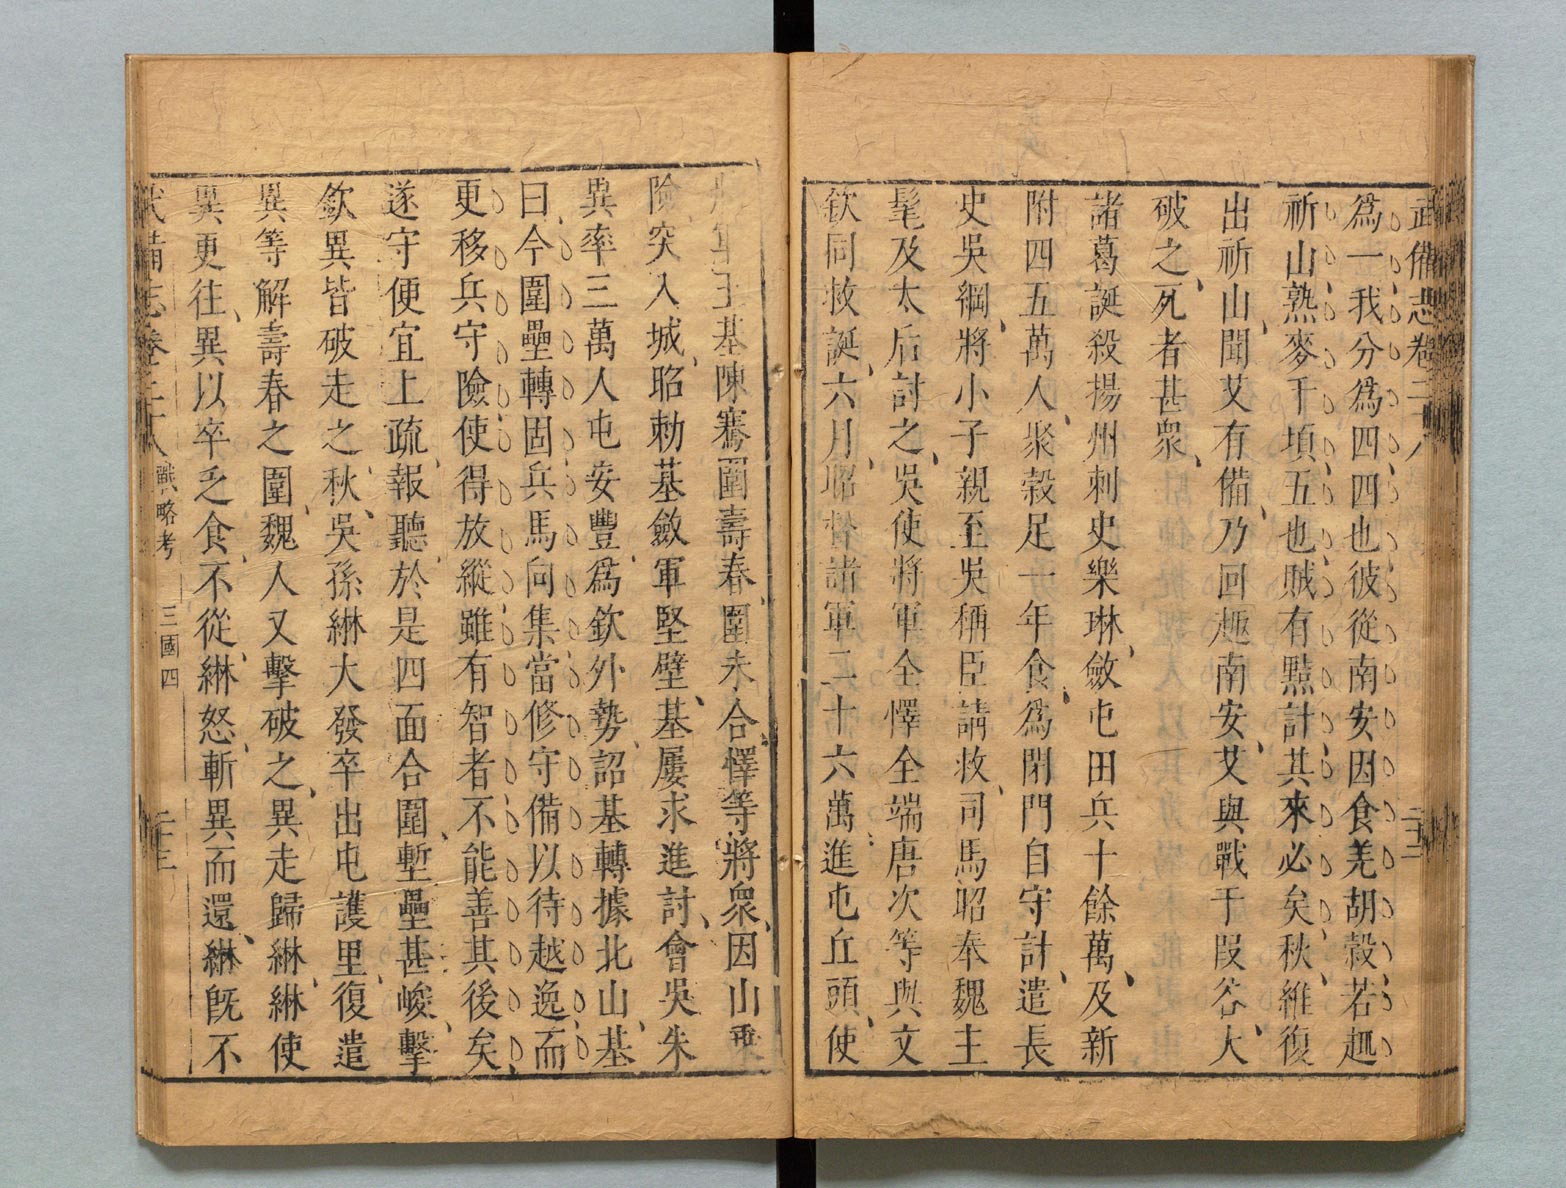 武備志卷二十八
二十二
爲一我分爲四四也彼從南安因食羌胡穀若趣
祈山熟麥千頃五也賊有黠計其來必矣秋維復
出祈山聞艾有備乃回趣南安艾與戰于段谷大
破之死者甚衆
諸葛誕殺揚州刺史樂琳斂屯田兵十餘萬及新
附四五萬人聚穀足一年食爲閉門自守計遣長
史吳綱將小子親至吳稱臣請救司馬昭奉魏主
髦及太后討之吳使將軍全懌全端唐次等與文
欽同救誕六月昭督諸軍二十六萬進屯丘頭使
將軍王基陳騫圍壽春圍未合懌等將衆因山乗
險突入城昭勅基斂軍堅壁基屢求進討會吳朱
異率三萬人屯安豐爲欽外勢詔基轉據北山基
曰今圍壘轉固兵馬向集當修守備以待越逸而
更移兵守險使得放縱雖有智者不能善其後矣
遂守便宜上疏報聽於是四面合圍塹壘甚峻擊
欽異皆破走之秋吳孫綝大發卒出屯護里復遣
異等解壽春之圍魏人又擊破之異走歸綝綝使
異更往異以卒乏食不從綝怒斬異而還綝旣不
武備志卷二十八 戰略考 三國四 二十三